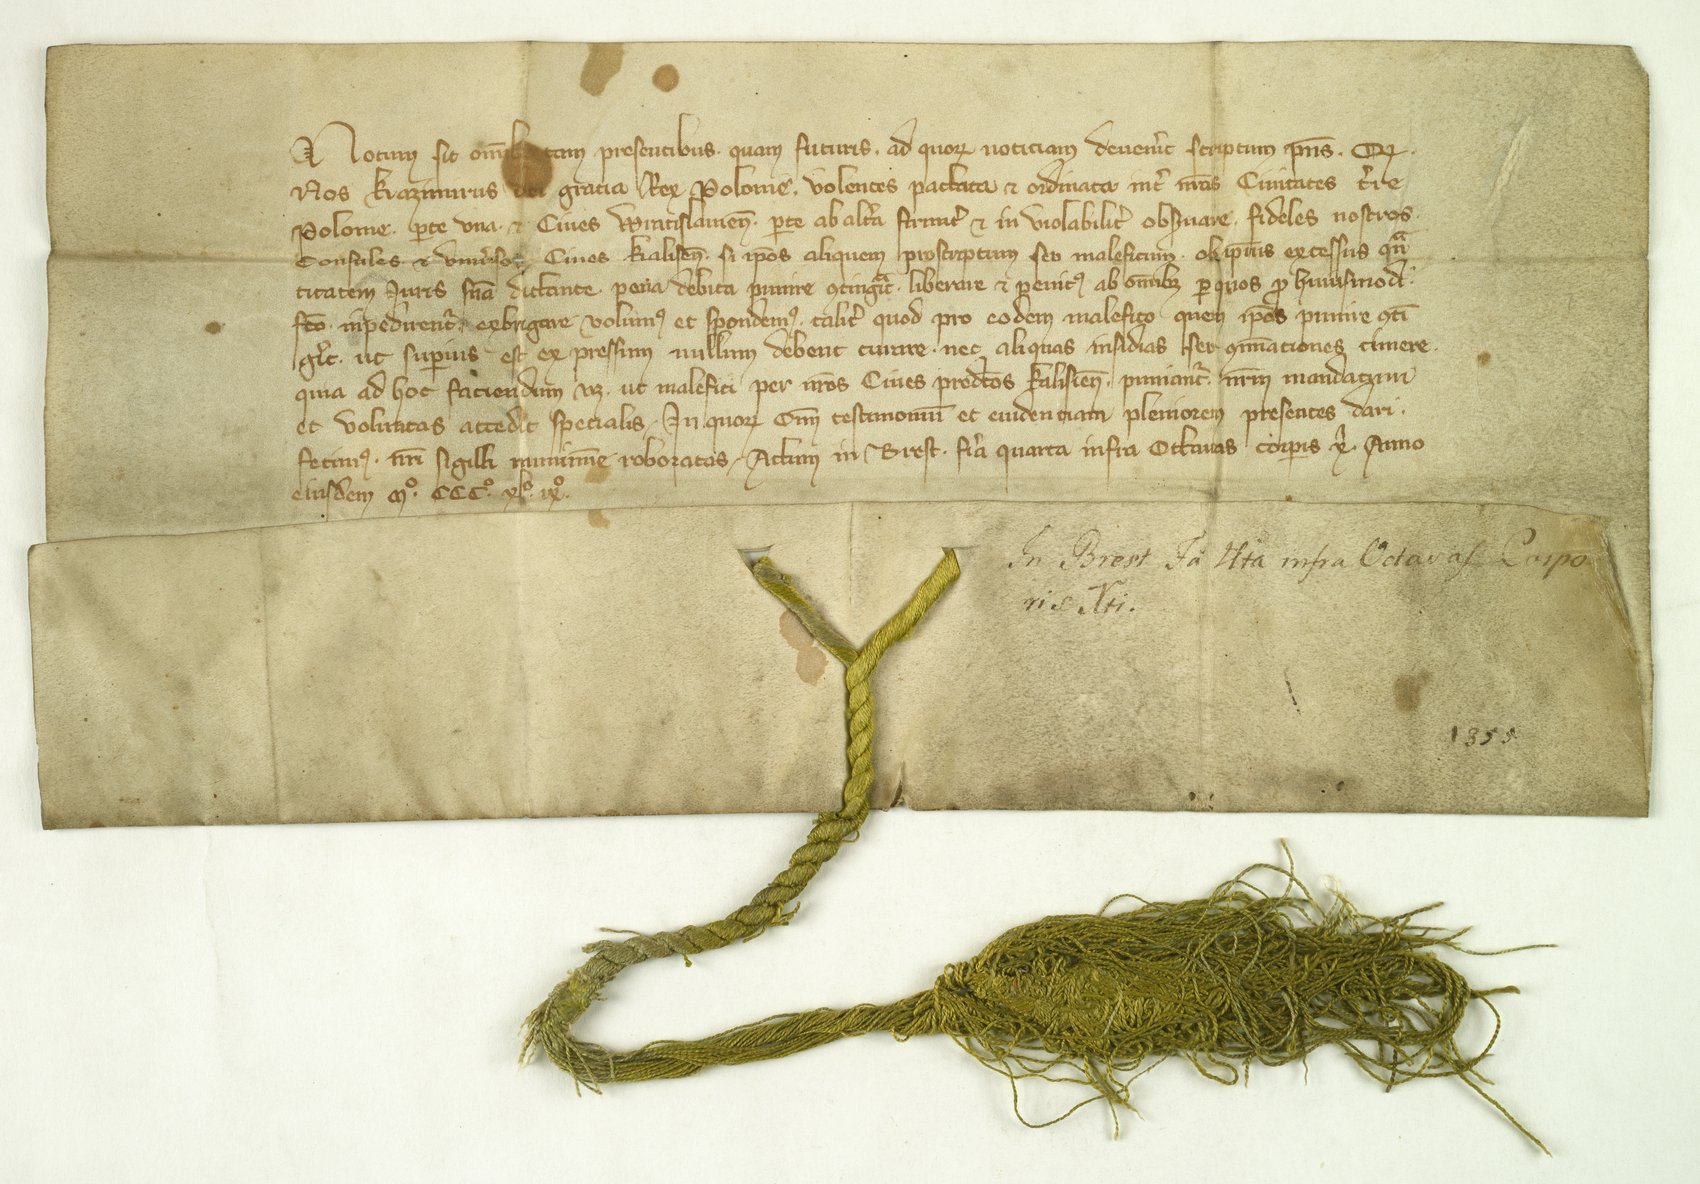 Notum sit om̄ibus tam presentibus. quam futuris. ad quoꝝ noticiam deuen̄it scriptum p̄ns. Qꝫ.
Nos kazimirus dei gratia Rex Polonie. volentes pactata ⁊ ordinata int̄ nr̄as Ciuitates t̄re
Polonie. ꝑte vna. ⁊ Ciues wratislauien̄. ꝑte ab alt̄a firmit̄ ⁊ in violabilit̄ obs̄uare. fideles nostros.
Consules ⁊ vniu̾sos Ciues kalisien̄. si ip̄os aliquem proscriptum seu maleficum. ob ip̄ius excessus qᵃn
titatem Juris sn̄ia dictante pena debita punire ꝯtingᵃt. liberare ⁊ penitꝰ ab om̄ibꝫ ꝑ quos ꝓ huiusmodi.
fc̄o. inpedirent̄. exbrigare volumꝰ et spondemꝰ. talit̄ quod pro eodem malefico quem ip̄os punire ꝯti
gēt. ut suꝑius est ex pressum nullum debent curare. nec aliquas insidias seu ꝯminationes timere.
quia ad hoc faciendum vꝫ. ut malefici per nr̄os Ciues predc̄os kalisien̄. puniant̄. nr̄m mandatum
et voluntas accedit specialis. In quoꝝ om̄ testimoniū et euidentiam pleniorem presentes dari.
fecimꝰ. nr̄i sigilli munimīe roboratas. Actum in Brest. fīa quarta infra Octauas corꝑis xp̄i. Anno
eiusdem Mº. CCCº. xlº. ixº.
In Brest Fa 4ta infra Octavas Corpo
ris Xti.
1355